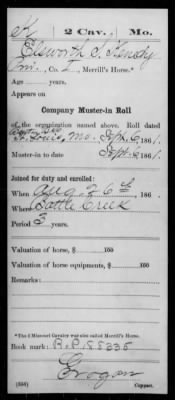 K 2 Cav. Mo.
Elsworth S. Hendy
Pvt., Co. I, Merrill's Horse.*
Age years.
Appears on
Company Muster-in Roll
of the organization named above. Roll dated
St. Louis, Mo. Sept. 6, 1861.
Muster-in to date Sept. 6, 1861.
Joined for duty and enrolled:
When Aug. 26, 186 .
Where Battle Creek
Period 3 years.
Valuation of horse, $ 100
Valuation of horse equipments, $ 100
Remarks:
*The 2 Missouri Cavalry was also called Merrill's Horse.
Book mark: R.P. 58335
Grogan
(356) Copyist.